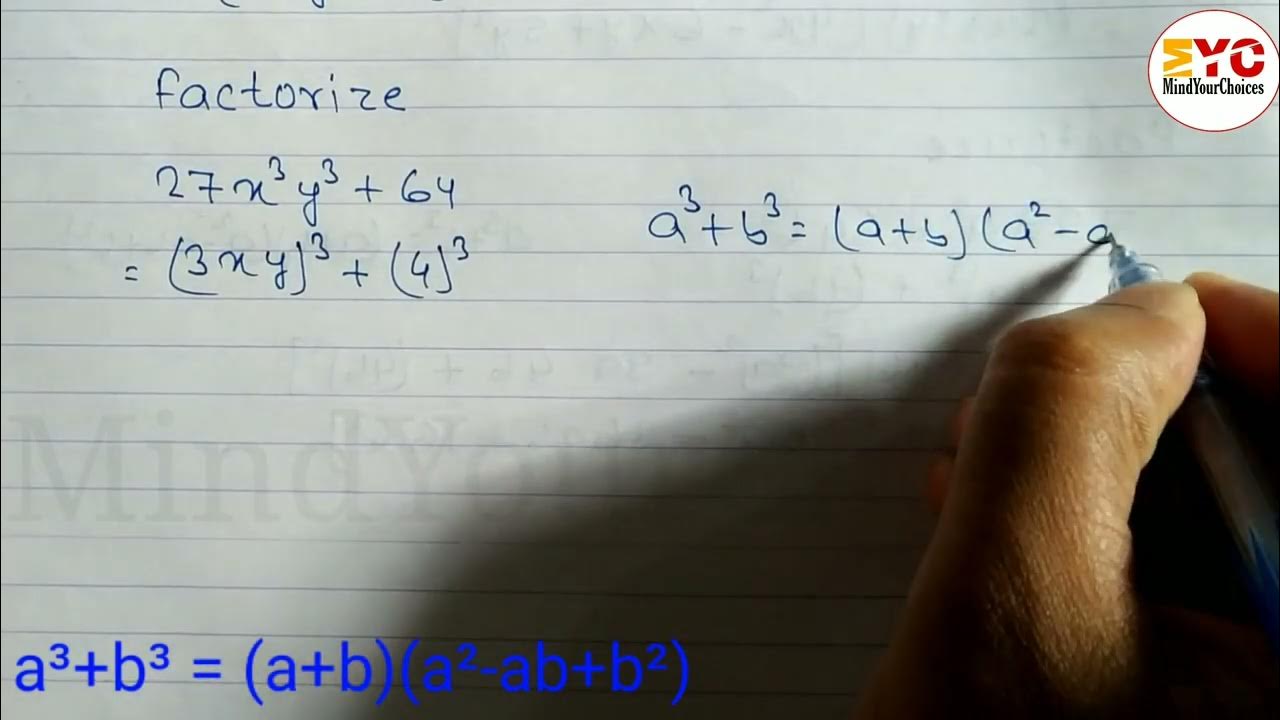 factorize
27x³y³ + 64
= (3xy)³ + (4)³
a³+b³ = (a+b) (a² - a
MYC
MindYourChoices
MindYou
a³+b³ = (a+b)(a²-ab+b²)